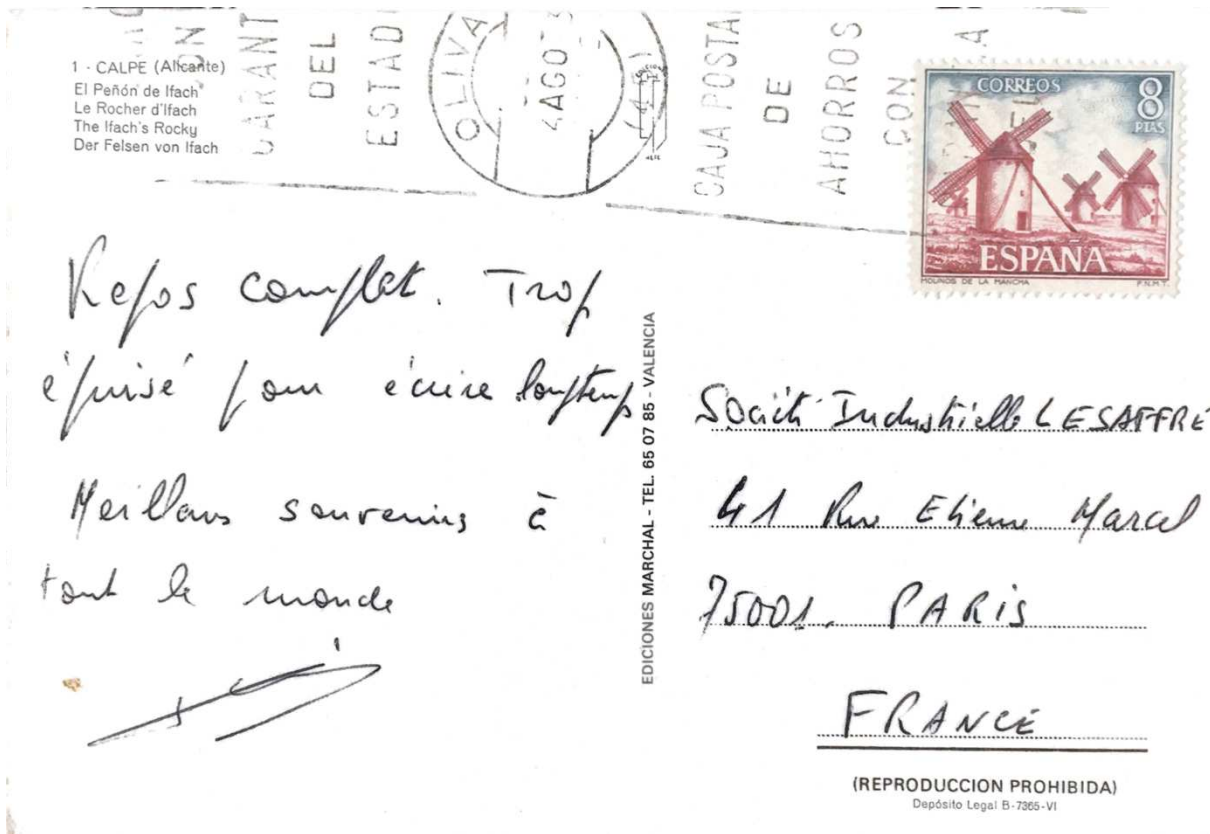 1 - CALPE (Alicante)
El Peñón de Ifach
Le Rocher d'Ifach
The Ifach's Rocky
Der Felsen von Ifach
GARANT
DEL
ESTAD
OLIVA
4 AGO
CAJA POSTA
DE
AHORROS
CON
CORREOS
8
PTAS
ESPAÑA
MOLINOS DE LA MANCHA
F.N.M.T.
Repos complet. Trop
épuisé pour écrire longtemps
Meilleurs souvenirs à
tout le monde
EDICIONES MARCHAL - TEL. 65 07 85 - VALENCIA
Société Industrielle LESAFFRE
41 Rue Etienne Marcel
75001. PARIS
FRANCE
(REPRODUCCION PROHIBIDA)
Depósito Legal B-7365-VI